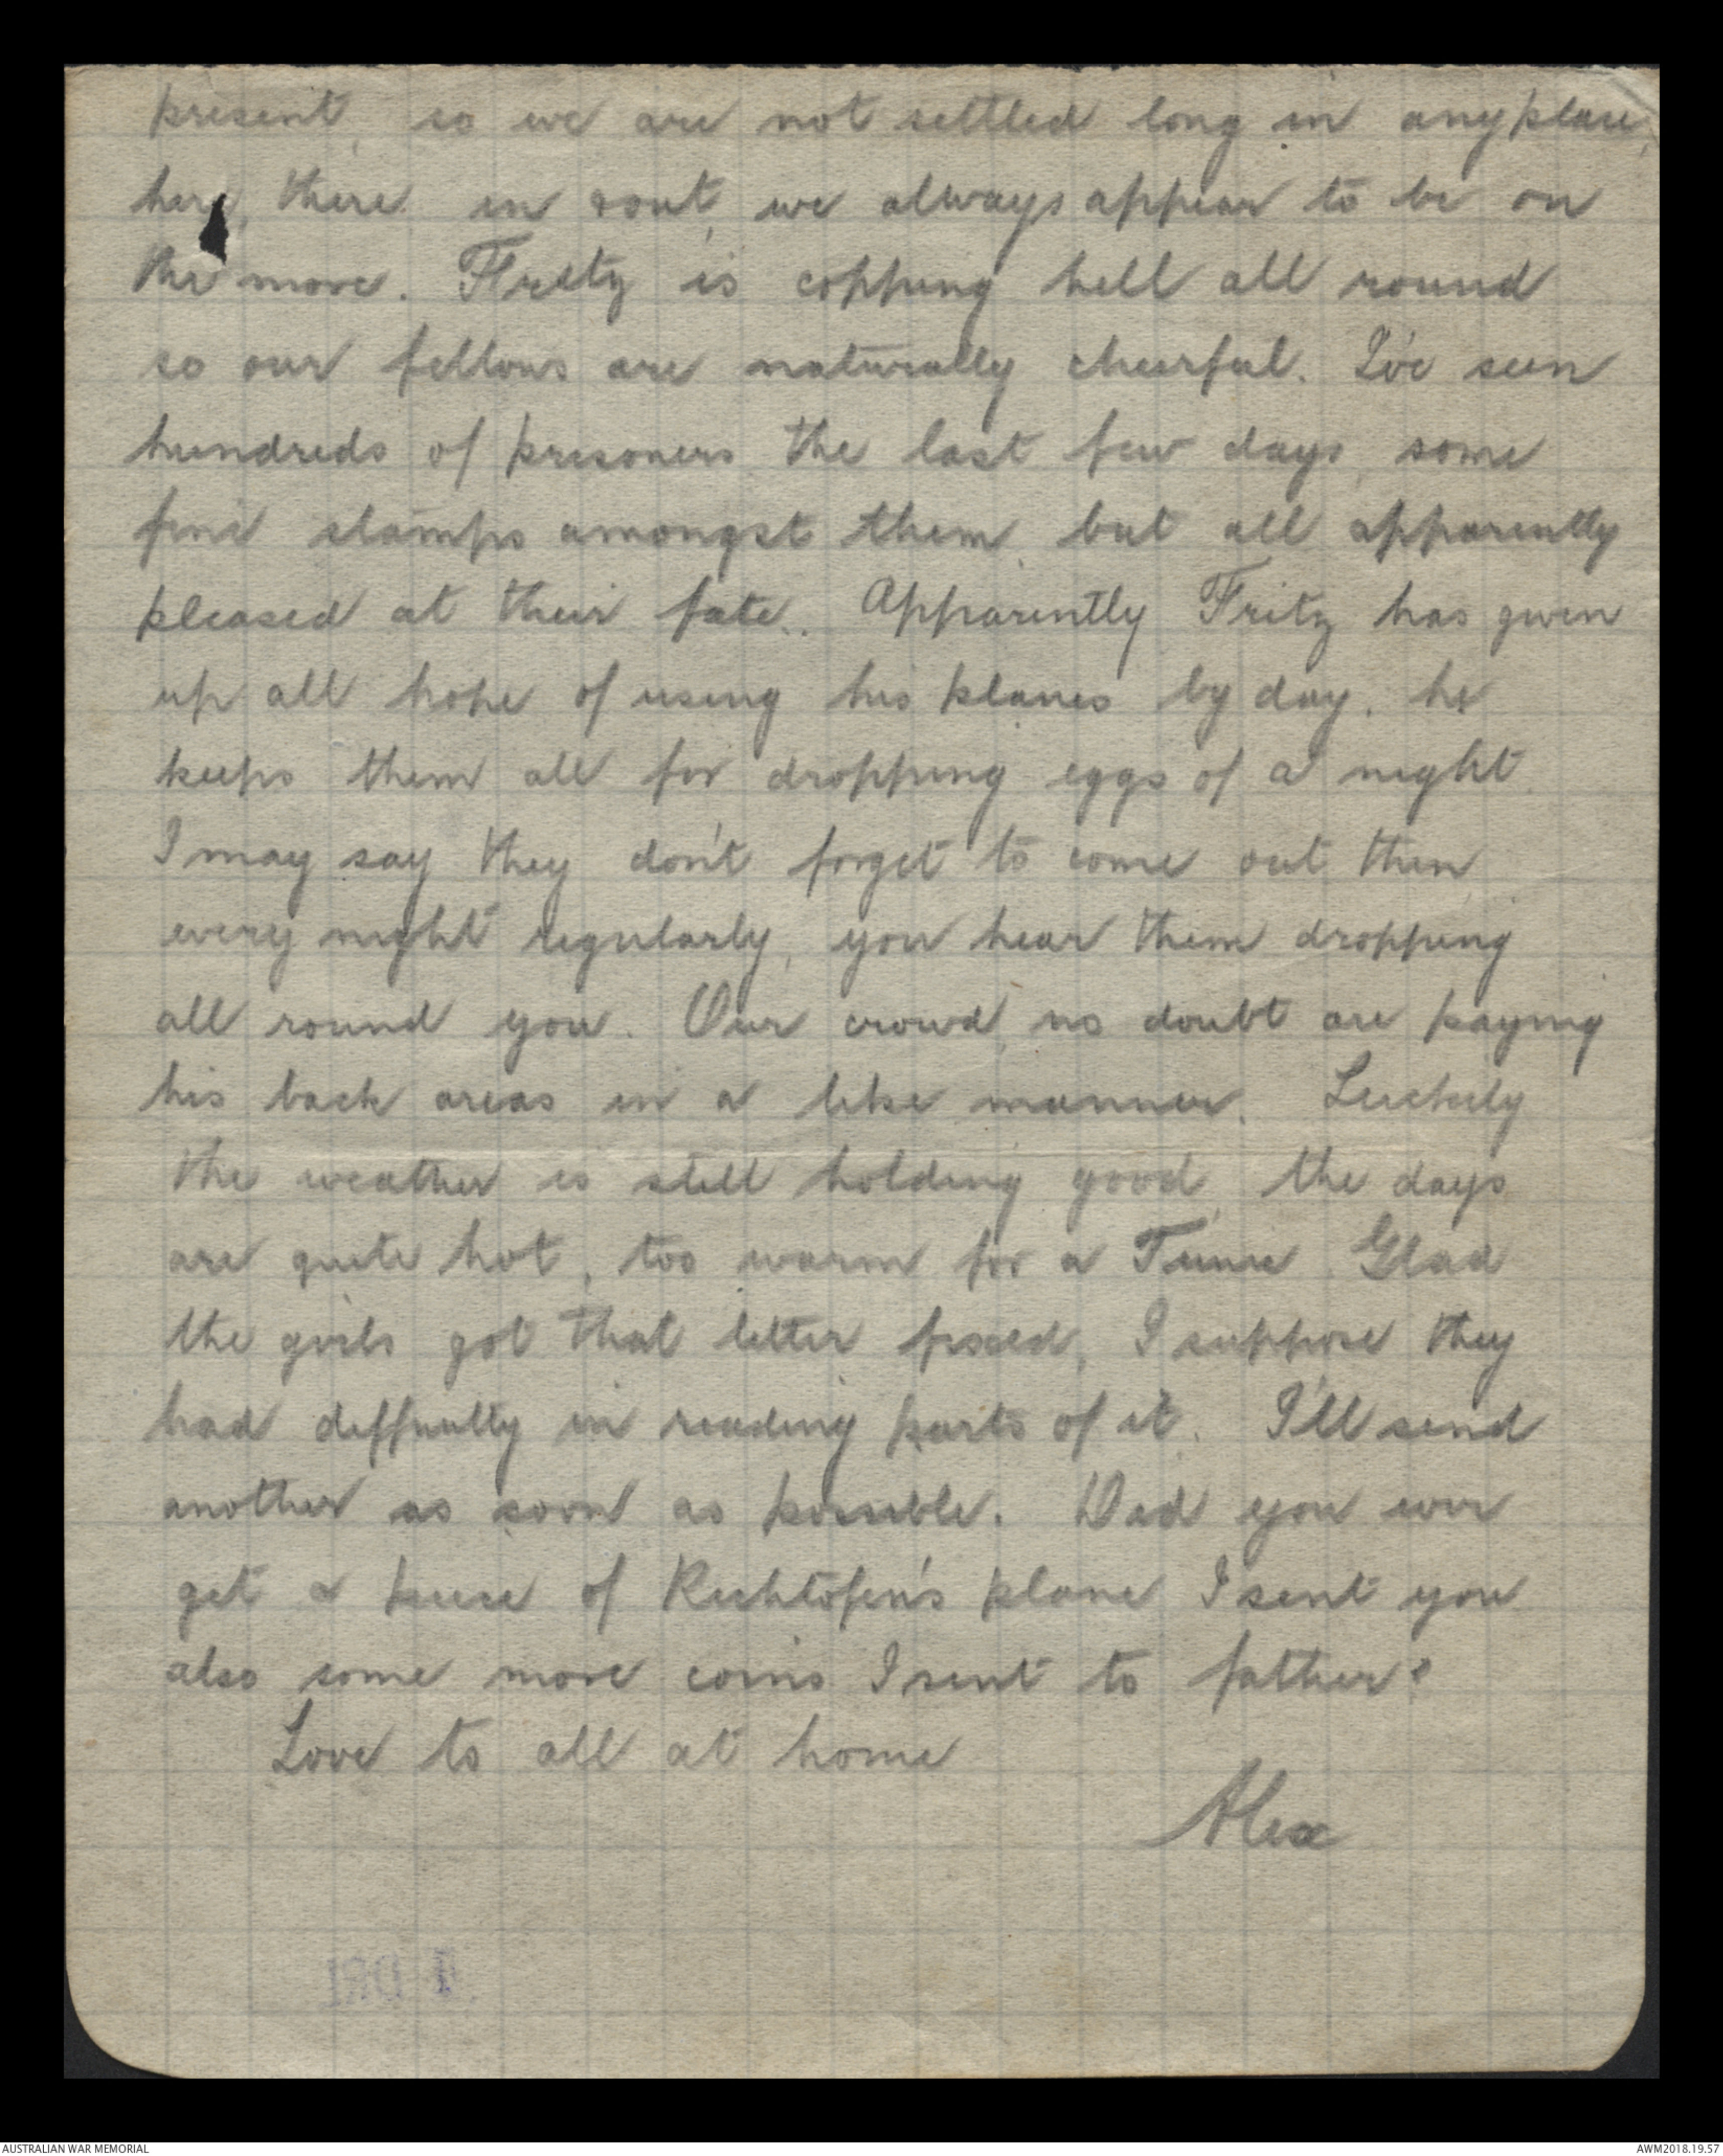 present, so we are not settled long in any place,
here, there in & out, we always appear to be on
the move. Fritz is copping hell all round
so our fellows are naturally cheerful. I've seen
hundreds of prisoners the last few days, some
fine stamps amongst them, but all apparently
pleased at their fate.. Apparently Fritz has given
up all hope of using his planes by day. he
keeps them all for dropping eggs of a night.
I may say they don't forget to come out then,
every night regularly, you hear them dropping
all round you. Our crowd, no doubt are paying
his back areas in a like manner. Luckily
the weather is still holding good, the days
are quite hot, too warm for a Tunic. Glad
the girls got that letter fixed, I suppose they
had difficulty in reading parts of it. I'll send
another as soon as possible. Did you ever
get a piece of Richtofen's plane I sent you
also some more coins I sent to father?
Love to all at home
Alex
AUSTRALIAN WAR MEMORIAL
AWM2018.19.57